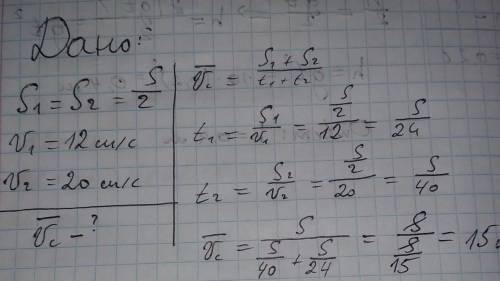 Дано:
S₁ = S₂ = S/2
v₁ = 12 см/с
v₂ = 20 см/с
v̅c - ?
v̅c = (S₁ + S₂)/(t₁ + t₂)
t₁ = S₁/v₁ = (S/2)/12 = S/24
t₂ = S₂/v₂ = (S/2)/20 = S/40
v̅c = S/(S/40 + S/24) = S/(S/15) = 15